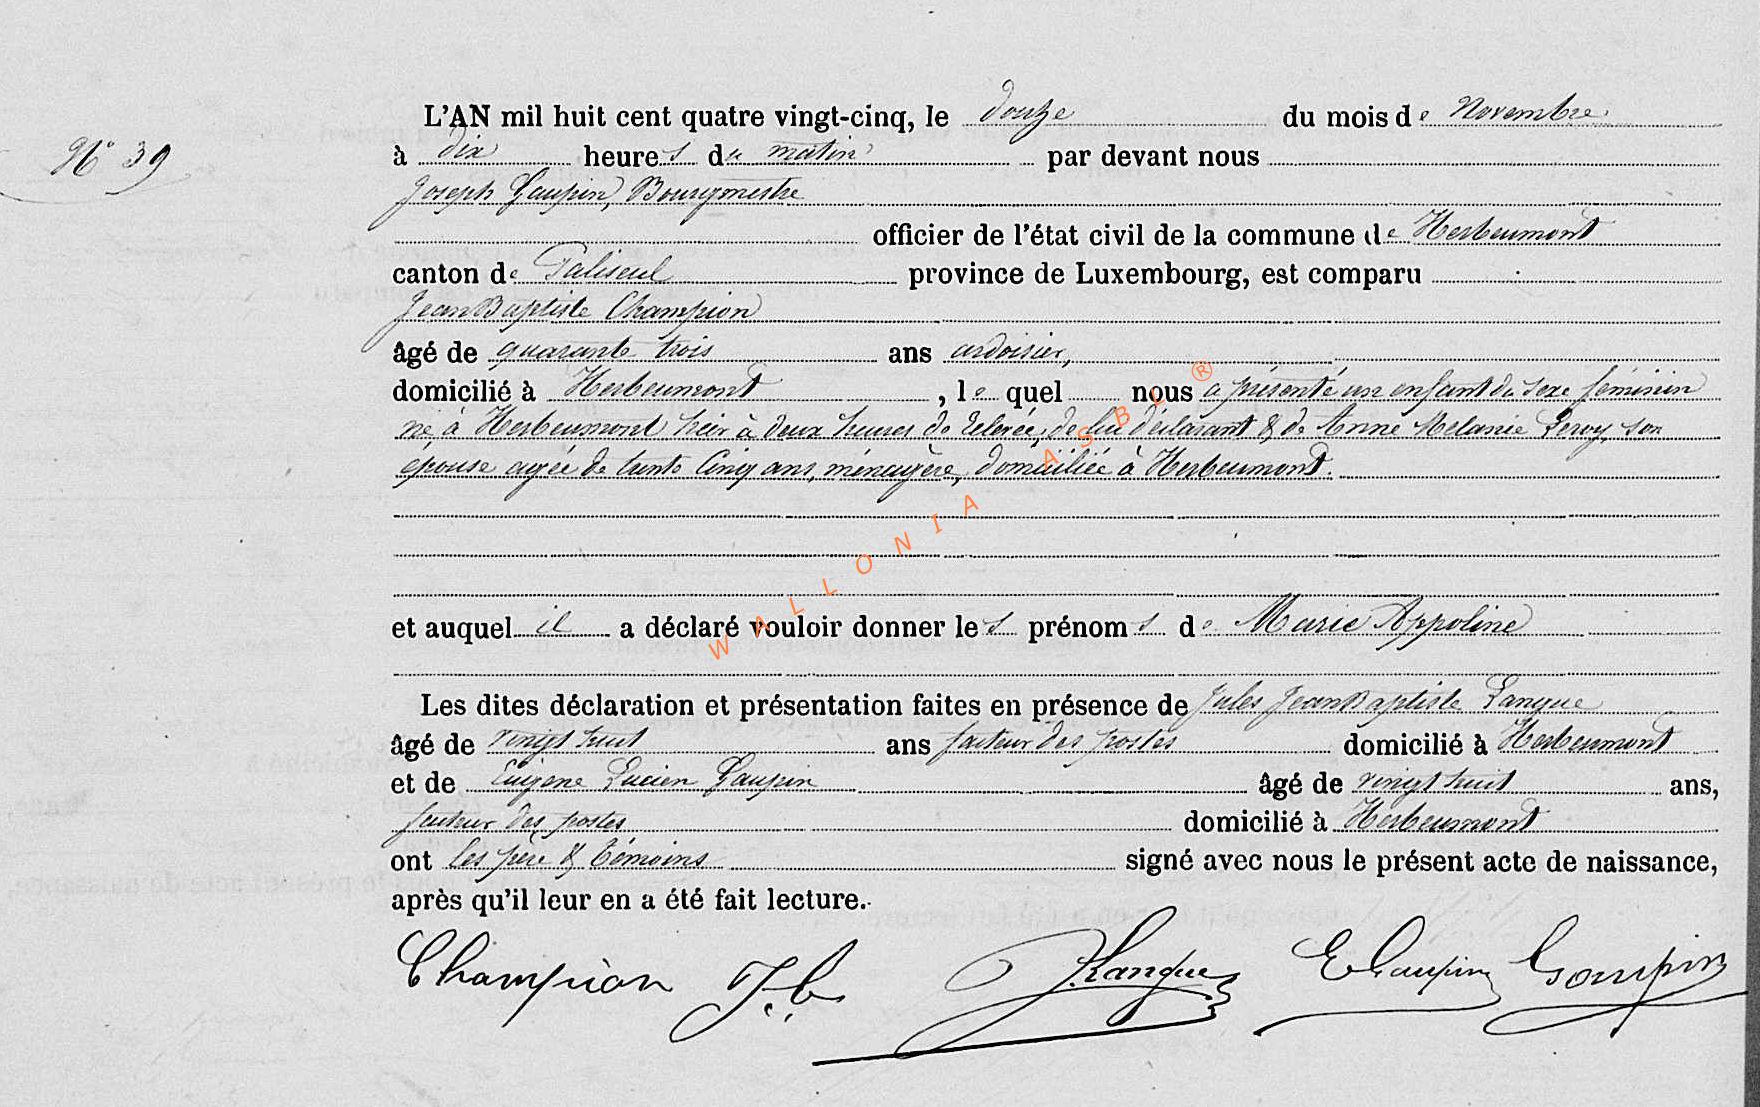 L'AN mil huit cent quatre vingt-cinq, le douze du mois de Novembre
N° 39
à dix heures du matin par devant nous
Joseph Gaupin, Bourgmestre
officier de l'état civil de la commune de Herbeumont
canton de Paliseul province de Luxembourg, est comparu
Jean Baptiste Champion
âgé de quarante trois ans ardoisier,
domicilié à Herbeumont, le quel nous a présenté un enfant du sexe féminin
né à Herbeumont hier à deux heures de relevée, de lui déclarant & de Anne Mélanie Leroy, son
épouse agée de trente cinq ans, ménagère, domiciliée à Herbeumont.
et auquel il a déclaré vouloir donner les prénoms de Marie Appoline
Les dites déclaration et présentation faites en présence de Jules Jean Baptiste Langue
âgé de vingt huit ans facteur des postes domicilié à Herbeumont
et de Eugène Lucien Gaupin âgé de vingt huit ans,
facteur des postes domicilié à Herbeumont
ont les père & témoins signé avec nous le présent acte de naissance,
après qu'il leur en a été fait lecture.
Champion J.B. J. Langue E Gaupin Gaupin
WALLONIA ASBL ®